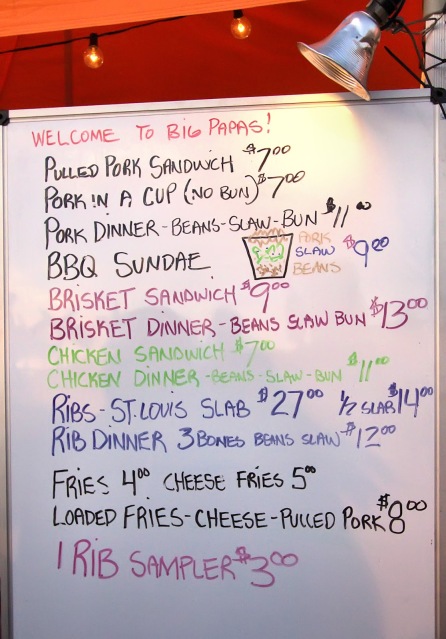 WELCOME TO BIG PAPAS!
PULLED PORK SANDWICH $7.00
PORK IN A CUP (NO BUN) $7.00
PORK DINNER - BEANS - SLAW - BUN $11.00
BBQ SUNDAE PORK SLAW BEANS $9.00
BRISKET SANDWICH $9.00
BRISKET DINNER - BEANS SLAW BUN $13.00
CHICKEN SANDWICH $7.00
CHICKEN DINNER - BEANS - SLAW - BUN $11.00
RIBS - ST. LOUIS SLAB $27.00 1/2 SLAB $14.00
RIB DINNER 3 BONES BEANS SLAW - $12.00
FRIES 4.00 CHEESE FRIES 5.00
LOADED FRIES - CHEESE - PULLED PORK $8.00
1 RIB SAMPLER $3.00